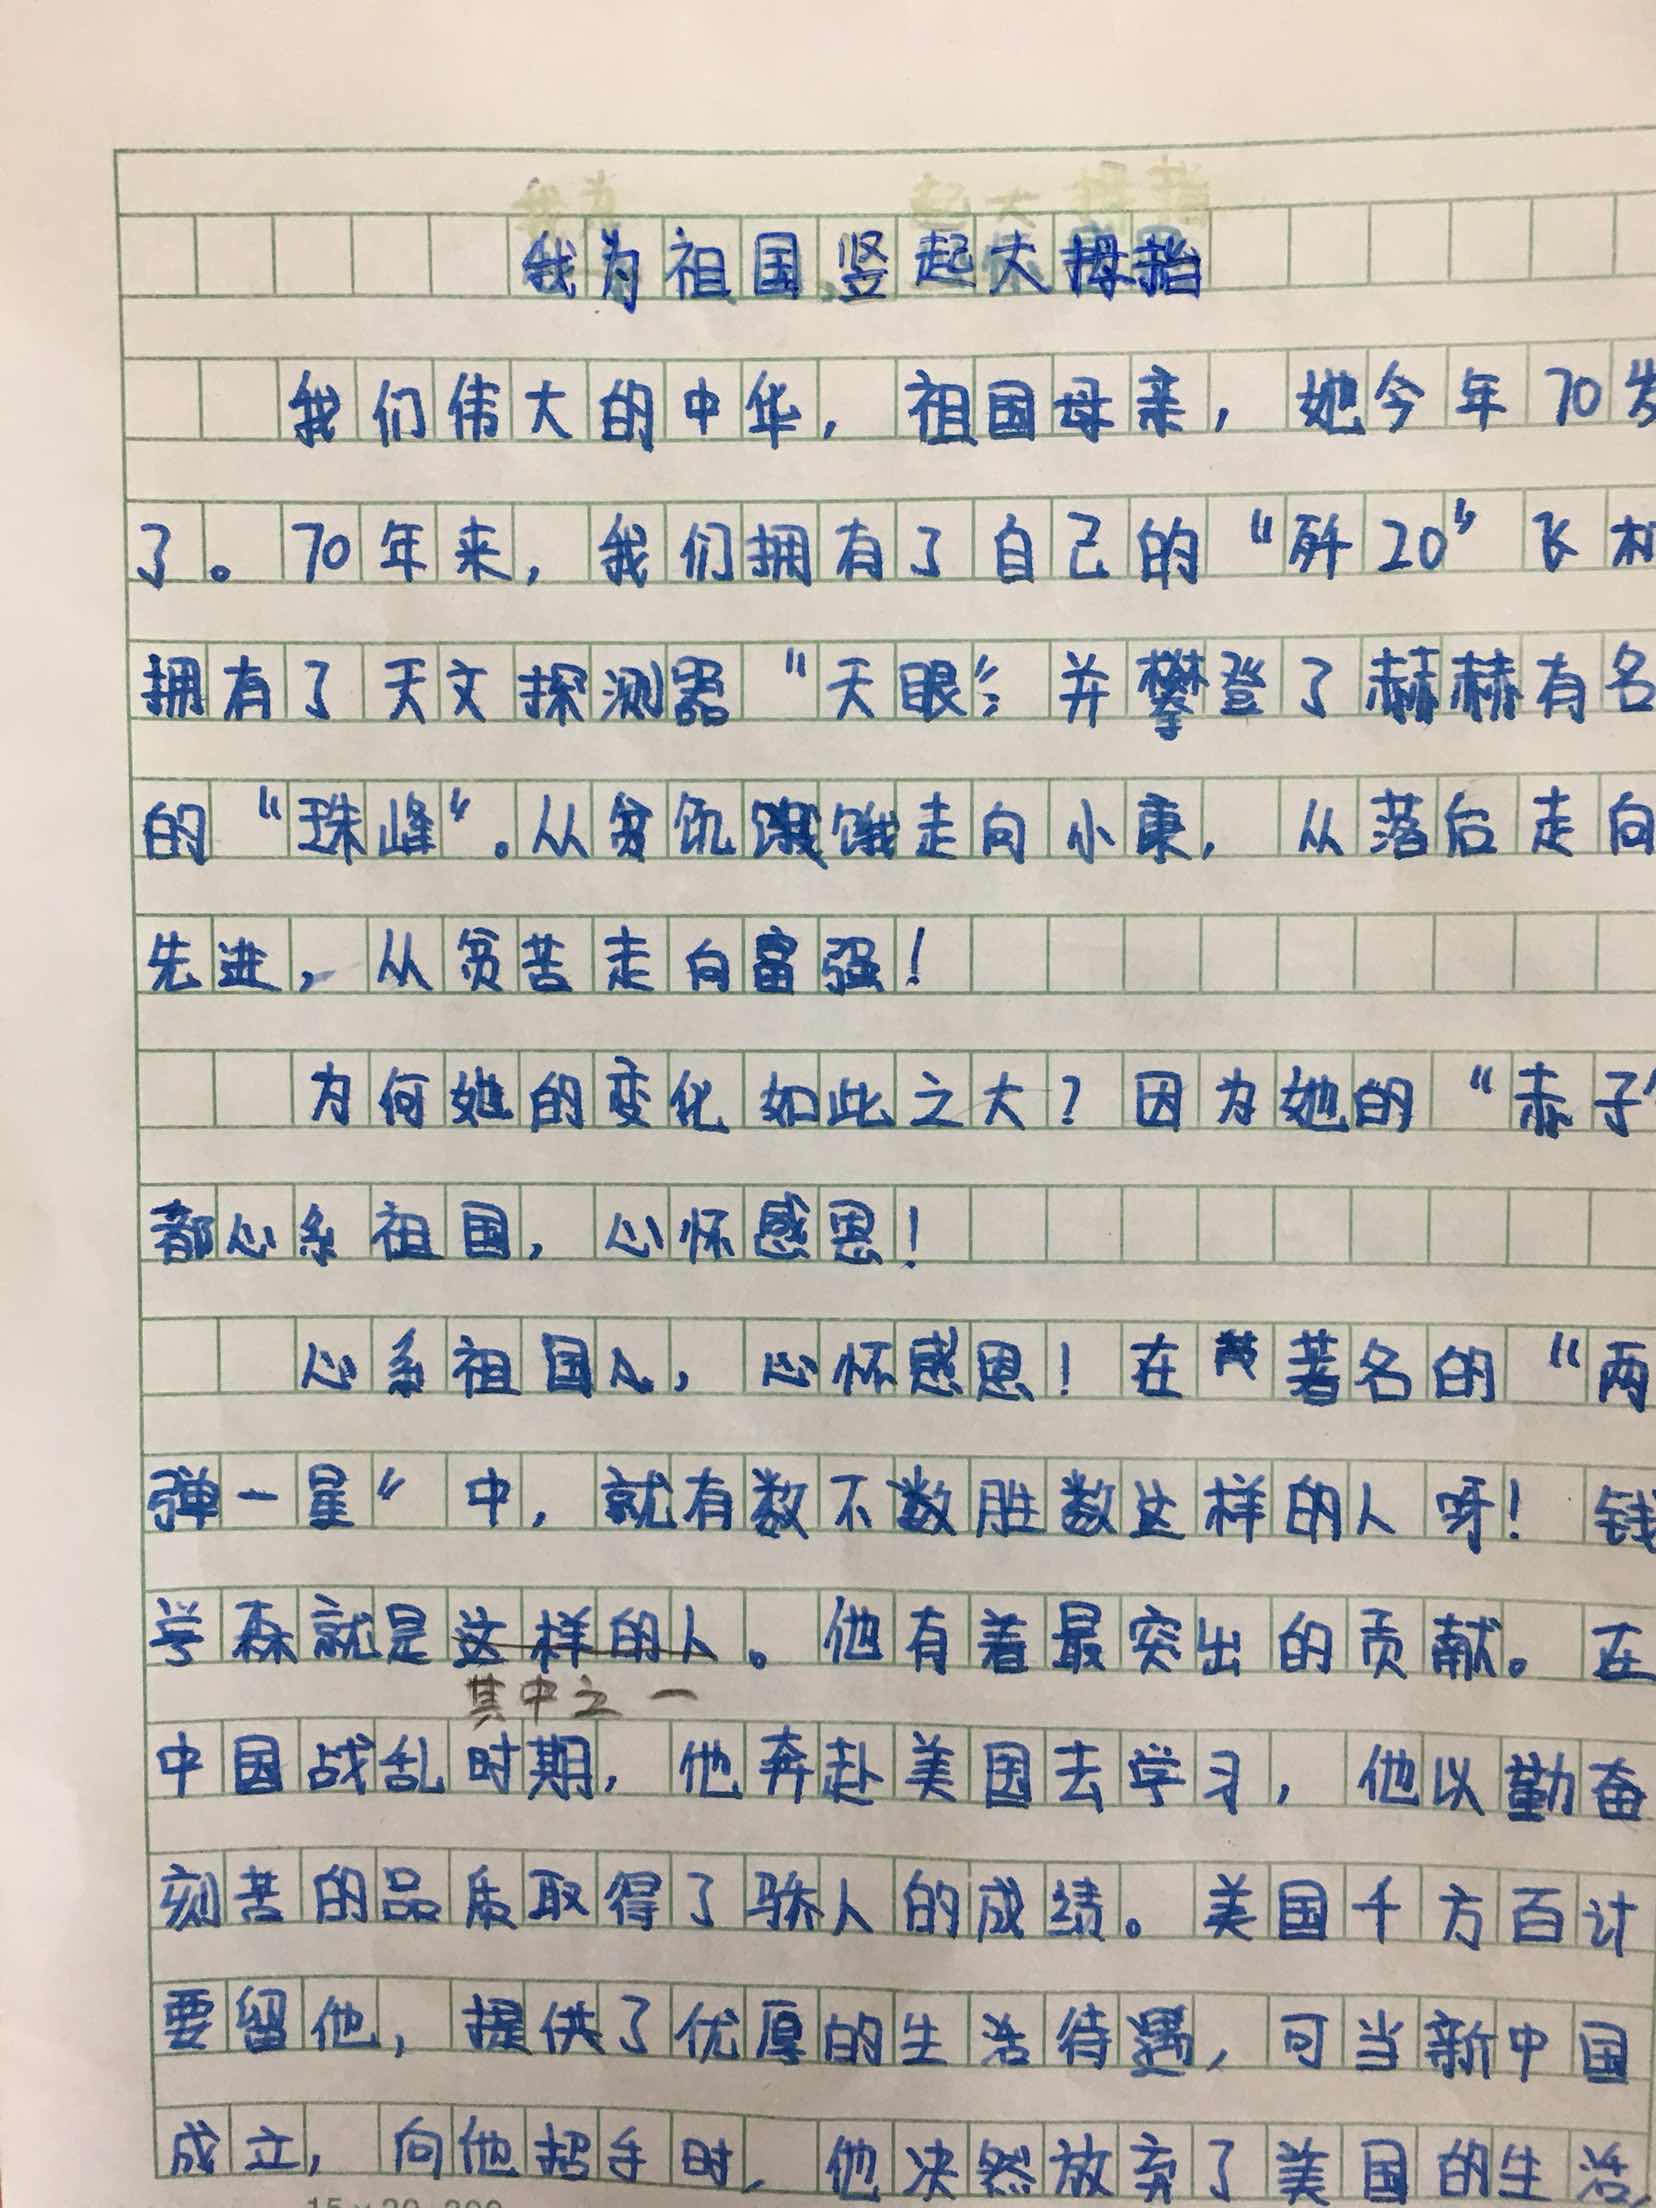 我为祖国竖起大拇指
我们伟大的中华，祖国母亲，她今年70岁
了。70年来，我们拥有了自己的“歼20”飞机
拥有了天文探测器“天眼”；并攀登了赫赫有名
的“珠峰”。从贫饥饿走向小康，从落后走向
先进，从贫苦走向富强！
为何她的变化如此之大？因为她的“赤子”
都心系祖国，心怀感恩！
心系祖国，心怀感恩！在著名的“两
弹一星”中，就有数不数胜数这样的人呀！钱
学森就是这样的人。他有着最突出的贡献。在
其中之一
中国战乱时期，他奔赴美国去学习，他以勤奋
刻苦的品质取得了骄人的成绩。美国千方百计
要留他，提供了优厚的生活待遇，可当新中国
成立，向他招手时，他决然放弃了美国的生活